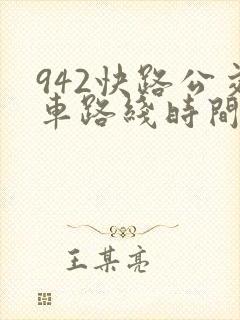 942快路公交
車路綫時間
王某亮